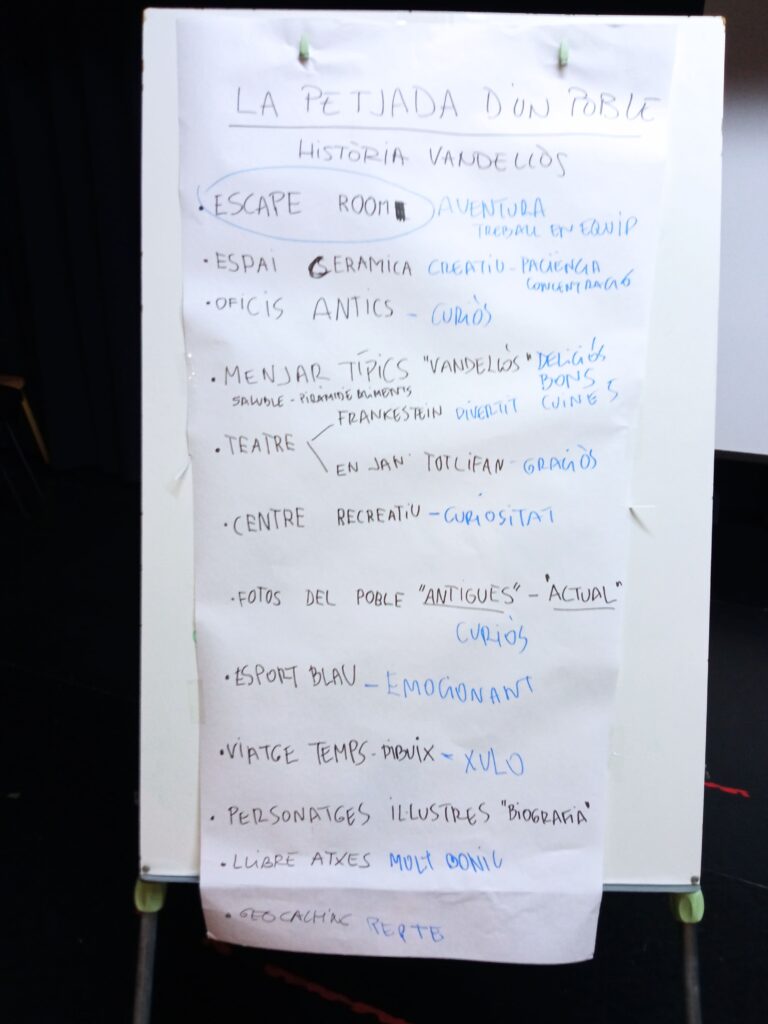 LA PETJADA D'UN POBLE
HISTÒRIA VANDELLÒS
• ESCAPE ROOM AVENTURA
TREBALL EN EQUIP
• ESPAI CERAMICA CREATIU - PACIÈNCIA
CONCENTRACIÓ
• OFICIS ANTICS - CURIÒS
• MENJAR TÍPICS "VANDELLÒS" DELICIÓS
BONS
SALUBLE - PIRÀMIDE ALIMENTS
CUINES
• TEATRE
FRANKESTEIN DIVERTIT
EN JAN TOTLIFAN - GRACIÒS
• CENTRE RECREATIU - CURIOSITAT
• FOTOS DEL POBLE "ANTIGUES" - "ACTUAL"
CURIÒS
• ESPORT BLAU - EMOCIONANT
• VIATGE TEMPS - DIBUIX - XULO
• PERSONATGES ILLUSTRES "BIOGRAFIA"
• LLIBRE ATXES MOLT BONIC
• GEOCACHING REPTE